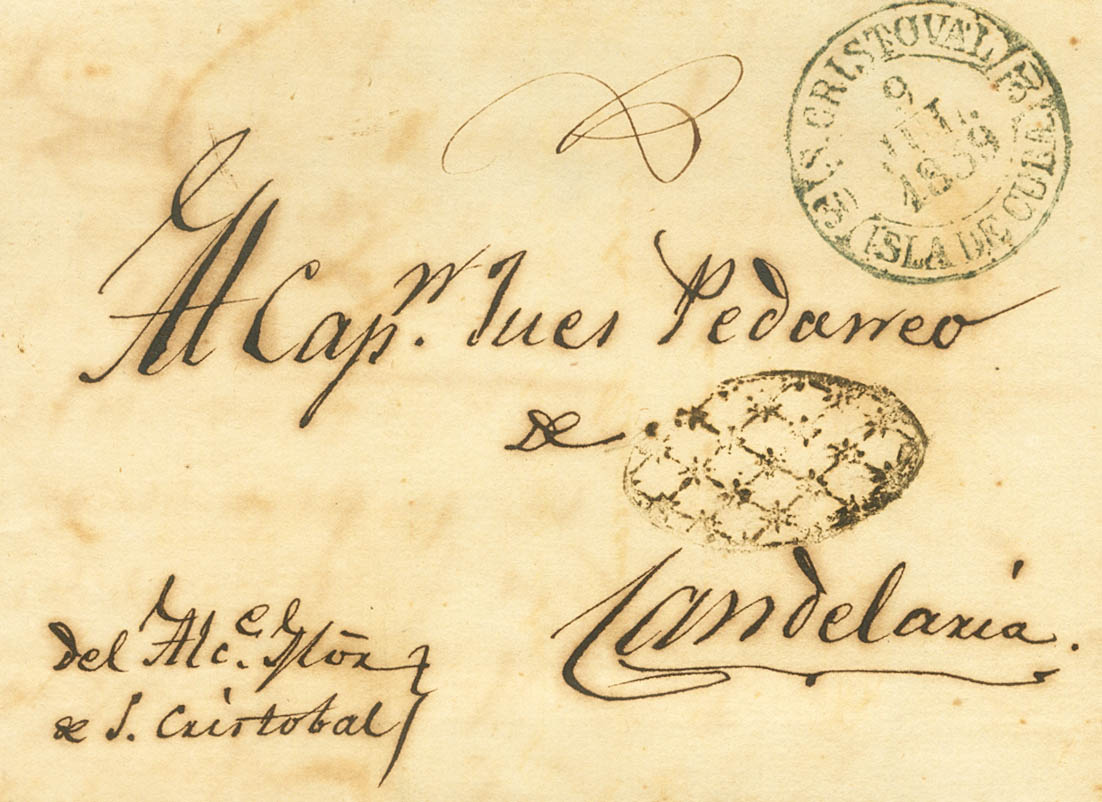 S. CRISTOVAL
9 JUL. 1859
ISLA DE CUBA
Al Cap.n Jues Pedaneo
de
Candelaria.
del Alc.e
de S. Cristobal